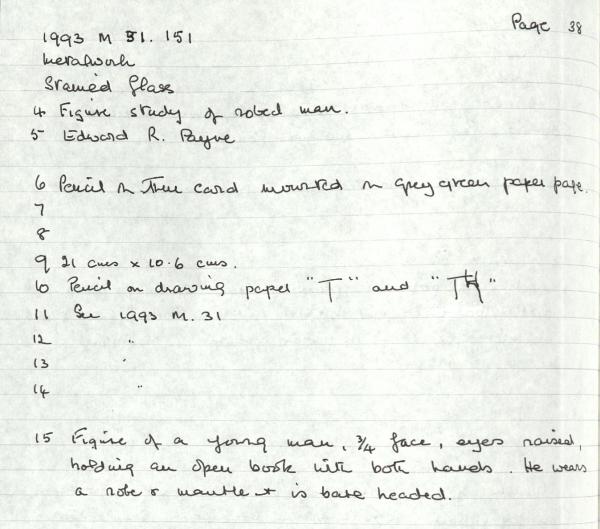 Page 38
1993 M 31. 151
Metalwork
Stained Glass
4 Figure study of robed man.
5 Edward R. Payne
6 Pencil on thin card mounted on grey green paper page.
7
8
9 21 cms x 10.6 cms.
10 Pencil on drawing paper "T" and "TH"
11 See 1993 M. 31
12 "
13 "
14 "
15 Figure of a young man, 3/4 face, eyes raised,
holding an open book with both hands. He wears
a robe & mantle & is bare headed.